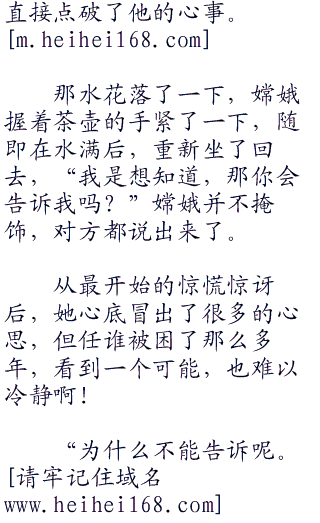 直接点破了他的心事。
[m.heihei168.com]
那水花落了一下，嫦娥
握着茶壶的手紧了一下，随
即在水满后，重新坐了回
去，“我是想知道，那你会
告诉我吗？”嫦娥并不掩
饰，对方都说出来了。
从最开始的惊慌惊讶
后，她心底冒出了很多的心
思，但任谁被困了那么多
年，看到一个可能，也难以
冷静啊！
“为什么不能告诉呢。
[请牢记住域名
www.heihei168.com]